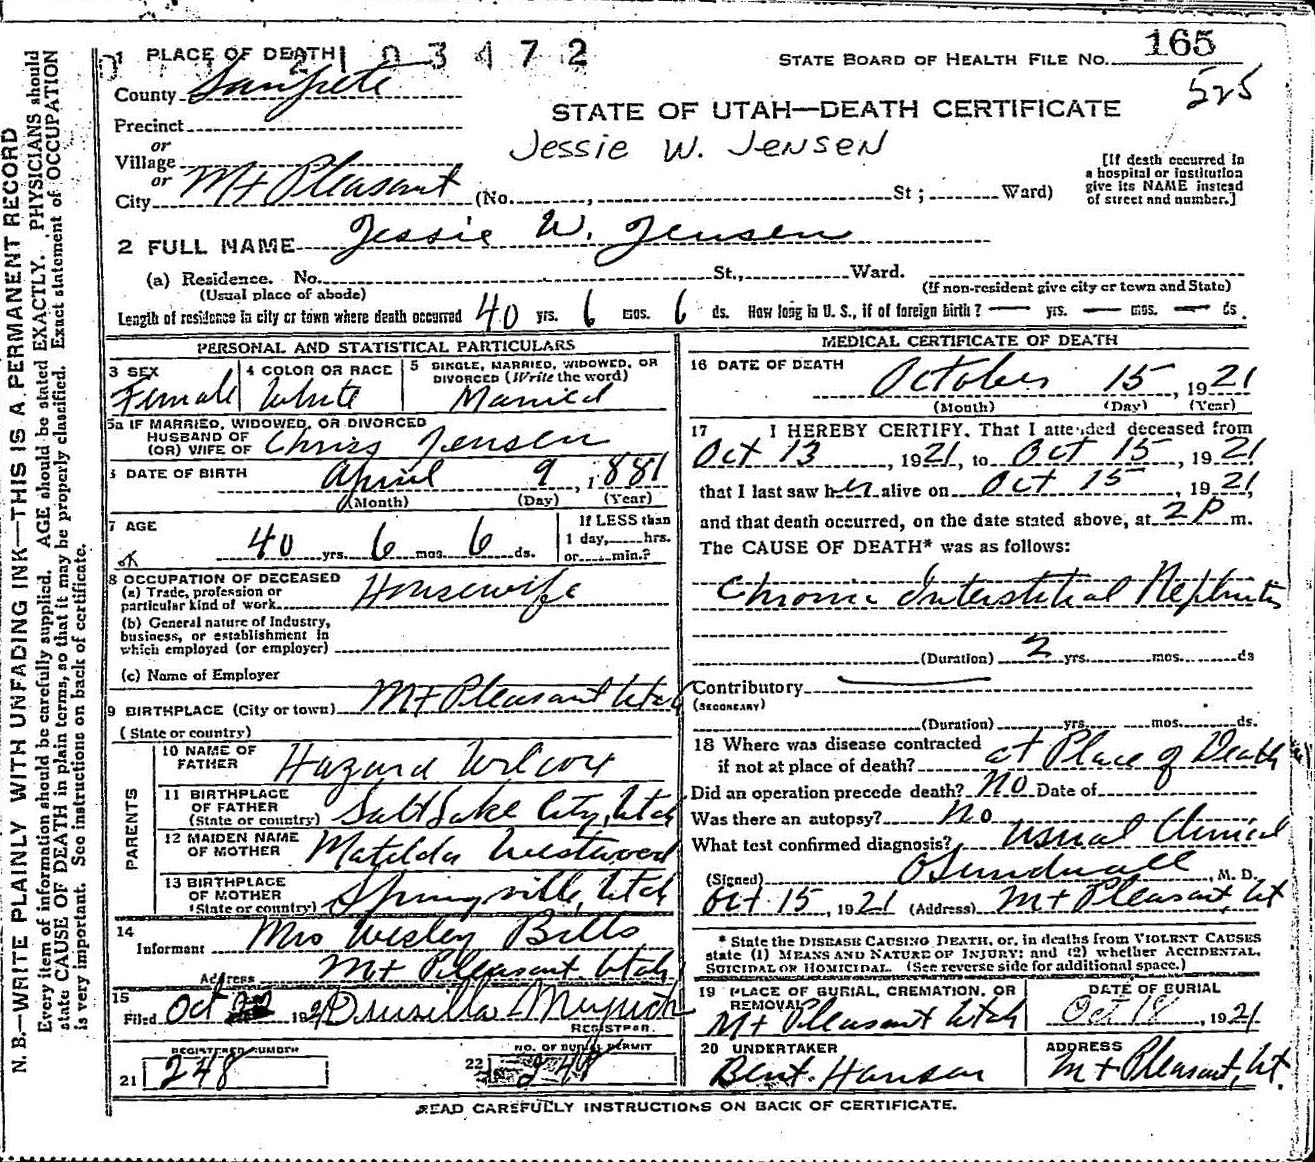 N. B.—WRITE PLAINLY WITH UNFADING INK—THIS IS A PERMANENT RECORD
Every item of information should be carefully supplied. AGE should be stated EXACTLY. PHYSICIANS should
state CAUSE OF DEATH in plain terms, so that it may be properly classified. Exact statement of OCCUPATION
is very important. See instructions on back of certificate.
1 PLACE OF DEATH
2 1 0 3 4 7 2
STATE BOARD OF HEALTH FILE No. 165
525
County Sanpete
STATE OF UTAH—DEATH CERTIFICATE
Precinct
or
Jessie W. Jensen
Village
or
City Mt Pleasant (No. , St ; Ward)
[If death occurred in
a hospital or institution
give its NAME instead
of street and number.]
2 FULL NAME Jessie W. Jensen
(a) Residence. No. St., Ward.
(Usual place of abode)
(If non-resident give city or town and State)
Length of residence in city or town where death occurred 40 yrs. 6 mos. 6 ds. How long in U. S., if of foreign birth? — yrs. — mos. — ds.
PERSONAL AND STATISTICAL PARTICULARS
3 SEX Female
4 COLOR OR RACE White
5 SINGLE, MARRIED, WIDOWED, OR
DIVORCED (Write the word)
Married
5a IF MARRIED, WIDOWED, OR DIVORCED
HUSBAND OF
(OR) WIFE OF Chris Jensen
6 DATE OF BIRTH April 9, 1881
(Month) (Day) (Year)
7 AGE
40 yrs. 6 mos. 6 ds.
If LESS than
1 day, hrs.
or min.?
8 OCCUPATION OF DECEASED
(a) Trade, profession or
particular kind of work Housewife
(b) General nature of Industry,
business, or establishment in
which employed (or employer)
(c) Name of Employer
9 BIRTHPLACE (City or town) Mt Pleasant Utah
(State or country)
PARENTS
10 NAME OF
FATHER Hazard Wilcox
11 BIRTHPLACE
OF FATHER
(State or country) Salt Lake City, Utah
12 MAIDEN NAME
OF MOTHER Matilda Westwood
13 BIRTHPLACE
OF MOTHER
(State or country) Springville, Utah
14
Informant Mrs Wesley Bills
Address Mt Pleasant Utah
15
Filed Oct 1921 Drusilla
REGISTRAR.
REGISTERED NUMBER
21 248
NO. OF BURIAL PERMIT
22 248
MEDICAL CERTIFICATE OF DEATH
16 DATE OF DEATH
October 15, 1921
(Month) (Day) (Year)
17 I HEREBY CERTIFY, That I attended deceased from
Oct 13, 1921, to Oct 15, 1921
that I last saw her alive on Oct 15, 1921,
and that death occurred, on the date stated above, at 2 P m.
The CAUSE OF DEATH* was as follows:
Chronic Interstitial Nephritis
(Duration) 2 yrs. mos. ds
Contributory
(SECONDARY)
(Duration) yrs. mos. ds.
18 Where was disease contracted
if not at place of death? at Place of Death
Did an operation precede death? No Date of
Was there an autopsy? No
What test confirmed diagnosis? Usual Clinical
(Signed) O Sundwall, M. D.
Oct 15, 1921 (Address) Mt Pleasant, Ut
* State the DISEASE CAUSING DEATH, or, in deaths from VIOLENT CAUSES
state (1) MEANS AND NATURE OF INJURY; and (2) whether ACCIDENTAL,
SUICIDAL OR HOMICIDAL. (See reverse side for additional space.)
19 PLACE OF BURIAL, CREMATION, OR
REMOVAL
Mt Pleasant Utah
DATE OF BURIAL
Oct 18, 1921
20 UNDERTAKER
Bent. Hansen
ADDRESS
Mt Pleasant, Ut.
READ CAREFULLY INSTRUCTIONS ON BACK OF CERTIFICATE.